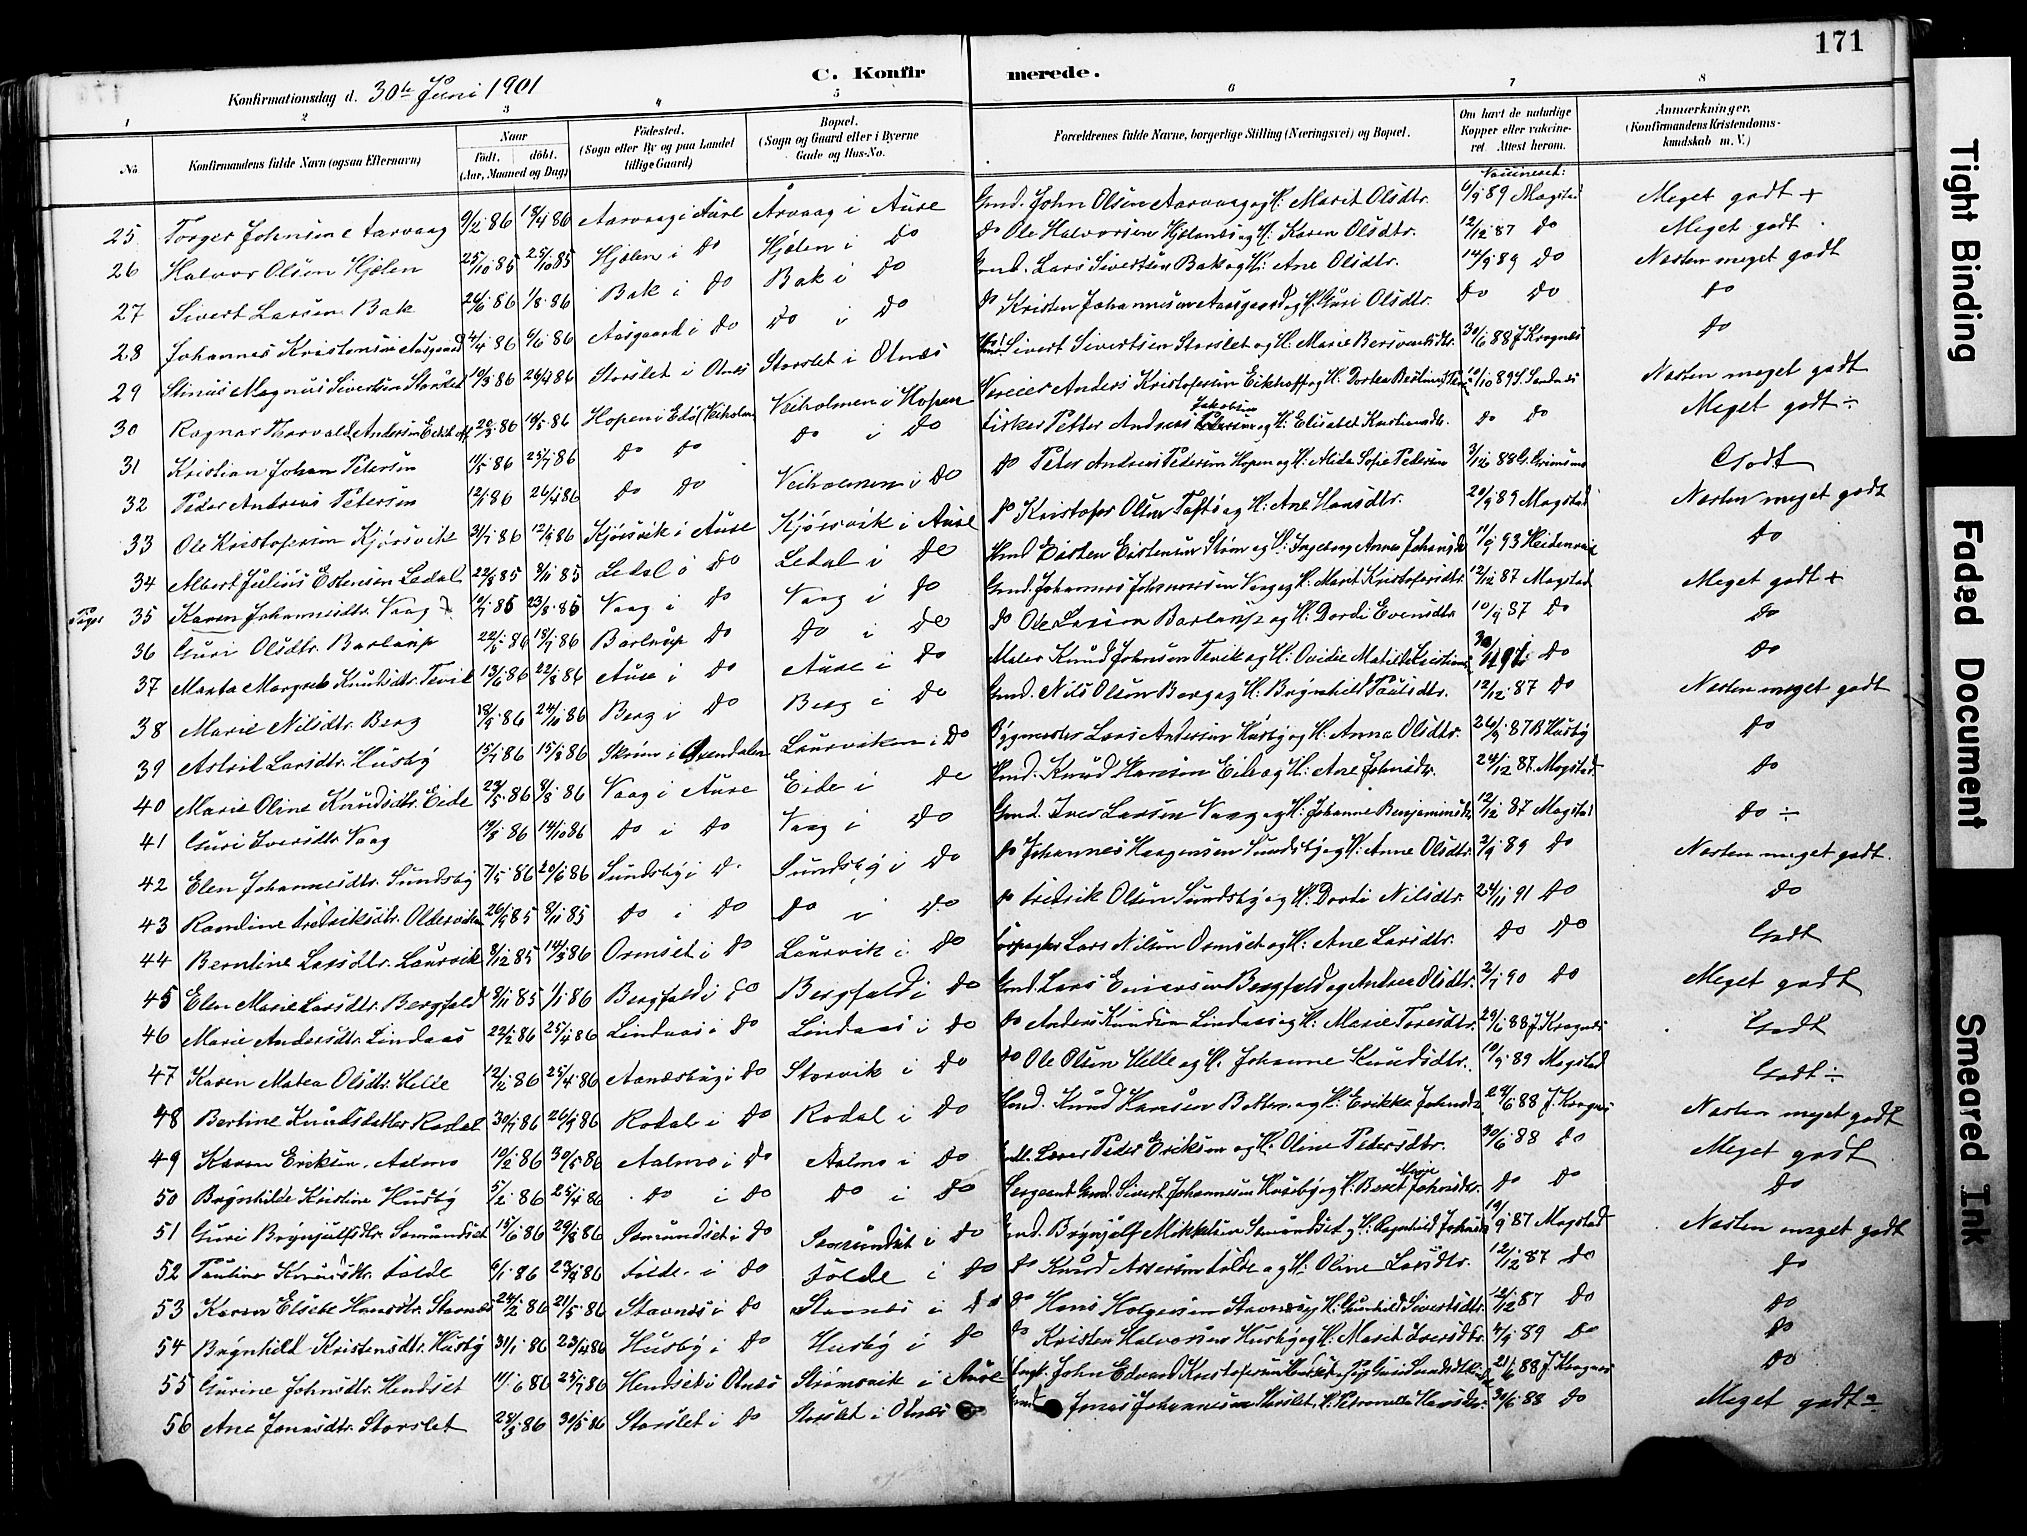 171
C. Konfirmerede.
Konfirmationsdag d. 30te Juni 1901
1 2 3 4 5 6 7 8
No
Konfirmandens fulde Navn (ogsaa Efternavn)
Naar
födt. döbt.
(Aar, Maaned og Dag)
Födested.
(Sogn eller By og paa Landet tillige Gaard)
Bopæl.
(Sogn og Gaard eller i Byerne Gade og Hus-No.
Forældrenes fulde Navne, borgerlige Stilling (Næringsvei) og Bopæl.
Om havt de naturlige Kopper eller vakcineret Attest herom.
Anmærkninger.
(Konfirmandens Kristendomskundskab m. V.)
25 Torger Johnsen Aarvaag 9/2 86 18/4 86 Aarvaag i Aure Årvaag i Aure Gmd. John Olsen Aarvaag og H. Marit Olsdtr. 4/9 89 Magstad Meget godt +
26 Halvor Olsen Hjelen 25/10 85 Hjelen i do Hjelen i do do Ole Halvorsen og H. Karen Olsdtr. 12/12 87 do Meget godt
27 Sivert Larsen Bak 1/8 86 Bak i do Bak i do Gmd. Lars Sivertsen Bak og H. Ane Olsdtr. 14/9 89 do Næsten meget godt
28 Johannes Kristensen Aasgaard 4/4 86 6/6 86 Aasgaard i do do i do do Kristen Johannesen Aasgaard og H. Guri Olsdtr. do do do
29 Stinus Magnus Sivertsen Storslet 19/3 86 26/4 86 Storslet i Olnes Storslet i Olnes Sivert Sivertsen Storslet og H. Marie 30/6 88 J. Krognes do
30 Ragnar Thorvald Andersen Hopen i Veiholmen i Hopen Anders Kristofersen Eikhoff og H. Dortea Næsten meget godt
31 Kristian Johan Petersen 11/5 86 25/7 86 do do do i do Fisker Petter Andreas Jakobsen og H. Elisabet do do Meget godt ÷
32 Peder Andreas Petersen 26/4 86 do do Veiholmen i do do Peter Andreas Pedersen Hopen og H. Alida Sofie Pedersen Godt
33 Ole Kristofersen Kjørsvik 12/9 86 Kjørsvik i Aure Kjørsvik i Aure do Kristofer Olsen og H. Ane Hansdtr. 20/9 89 Magstad Næsten meget godt
34 Albert Julius Estensen Ledal 22/8 85 8/11 85 Ledal i do Ledal i do og H. Ingeborg Anna 11/9 93 do
35 Karen Johannesdtr. Vaag 23/8 85 Vaag i do Vaag i do Gmd. Johannes Johannessen Vaag og H. Marit Kristofersdtr. 12/12 87 Magstad Meget godt +
36 Guri Olsdtr. Barlaup 22/5 86 18/7 86 Barlaup do do i do do Ole Larsen Barlaup og H. Dordi Evensdtr. 10/9 87 do do
37 Marta Margrete Knutsdtr. Tevik 13/6 86 22/8 86 Aure i do Aure i do Maler Knud Johnsen Tevik og H. Ovidie Matilde do do
38 Marie Nilsdtr. Berg 18/9 86 24/10 86 Berg i do Berg i do Gmd. Nils Olsen Berg og H. Brynhild Paulsdtr. 12/12 87 do Næsten meget godt
39 Astrid Larsdtr. Husby 15/7 86 15/8 86 Skrim i Øxendalen Laurviken i do Lars Andersen Husby og H. Anna Olsdtr. 26/9 87 B. Husby do
40 Marie Oline Knudsdtr. Eide 8/8 86 Vaag i Aure Eide i do Knud Hansen Eide og H. Ane Johnsdtr. 24/12 87 Magstad do
41 Guri Iversdtr. Vaag 19/8 86 14/10 86 do i do Vaag i do Gmd. Iver Larsen Vaag og H. Johanne Benjaminsdtr. 12/12 87 Magstad do ÷
42 Elen Johannesdtr. Sundsby 7/5 86 20/6 86 Sundsby i do Sundsby i do do Johannes Haagensen Sundsby og H. Anne Olsdtr. 2/9 89 do Næsten meget godt
43 Ramline Fredriksdtr. Oldervik 26/9 85 8/11 85 do i do do i do do Fredrik Olsen Sundsby og H. Dordi Nilsdtr. 24/11 91 do do
44 Berntine Larsdtr. Laurvik 8/12 85 14/3 86 Ormset i do Laurvik i do Lars Nilsen Ormset og H. Ane Larsdtr. do do Godt
45 Elen Marie Larsdtr. Bergfald 8/11 85 1/1 86 Bergfald i do Bergfald i do Gmd. Lars Bergfald og Andrea Olsdtr. 2/7 90 do Meget godt
46 Marie Andersdtr. Lindaas 22/2 86 25/4 86 Lindaas i do Lindaas i do do Anders Knudsen Lindaas og H. Marie Toresdtr. 29/6 88 J. Krognes Godt
47 Karen Matea Olsdtr. Helle 12/2 86 25/4 86 i do Storvik i do do Ole Olsen Helle og H. Johanne Knudsdtr. 10/9 89 Magstad Godt ÷
48 Bertine Knudsdatter Rodal 30/7 86 26/9 86 Rodal i do Rodal i do Gmd. Knud Hansen og H. Erikka Johnsdtr. 29/6 88 J. Krognes Næsten meget godt
49 Karen Eriksen Aalmo 10/2 86 30/5 86 Aalmo i do Aalmo i do Peder Eriksen og H. Oline Petersdtr. 30/6 88 do Meget godt
50 Brynhilde Kristine Husby 5/2 86 25/4 86 do i do do i do Sergeant Gmd. Sivert Johannesen Husby og H. Beret Marie Johnsdtr. do do do
51 Guri Brynjulfsdtr. Sæmundset 15/6 86 29/8 86 Sæmundset i do Sæmundset i do Gmd. Brynjulf Mikkelsen Sæmundset og H. Ragnhild 19/9 87 Magstad Næsten meget godt
52 Pauline Knudsdtr. Folde 6/1 86 23/4 86 Folde i do Folde i do do Knud Assersen Folde og H. Oline Larsdtr. 12/12 87 do do
53 Karen Elsebe Hansdtr. Stavnes 24/2 86 21/5 86 Stavnes i do Stavnes i do do Hans Holgersen Stavnes og H. Gunhild Sivertsdtr. 12/12 87 do do
54 Brynhild Kristensdtr. Husby 31/1 86 23/4 86 Husby i do Husby i do do Kristen Halvorsen Husby og H. Marit Iversdtr. 4/9 89 do do
55 Gurine Johnsdtr. Hendset 11/6 86 25/7 86 Hendset i Olnes Strømsvik i Aure John Edvard Kristofersen Hendset 21/6 88 J. Krognes do
56 Ane Jonasdtr. Storslet 28/3 86 30/5 86 Storslet i do Storslet i Olnes Jonas Johannesen Storslet, H. Petronelle Hansdtr. 30/6 88 do Meget godt
Tight Binding
Faded Document
Smeared Ink